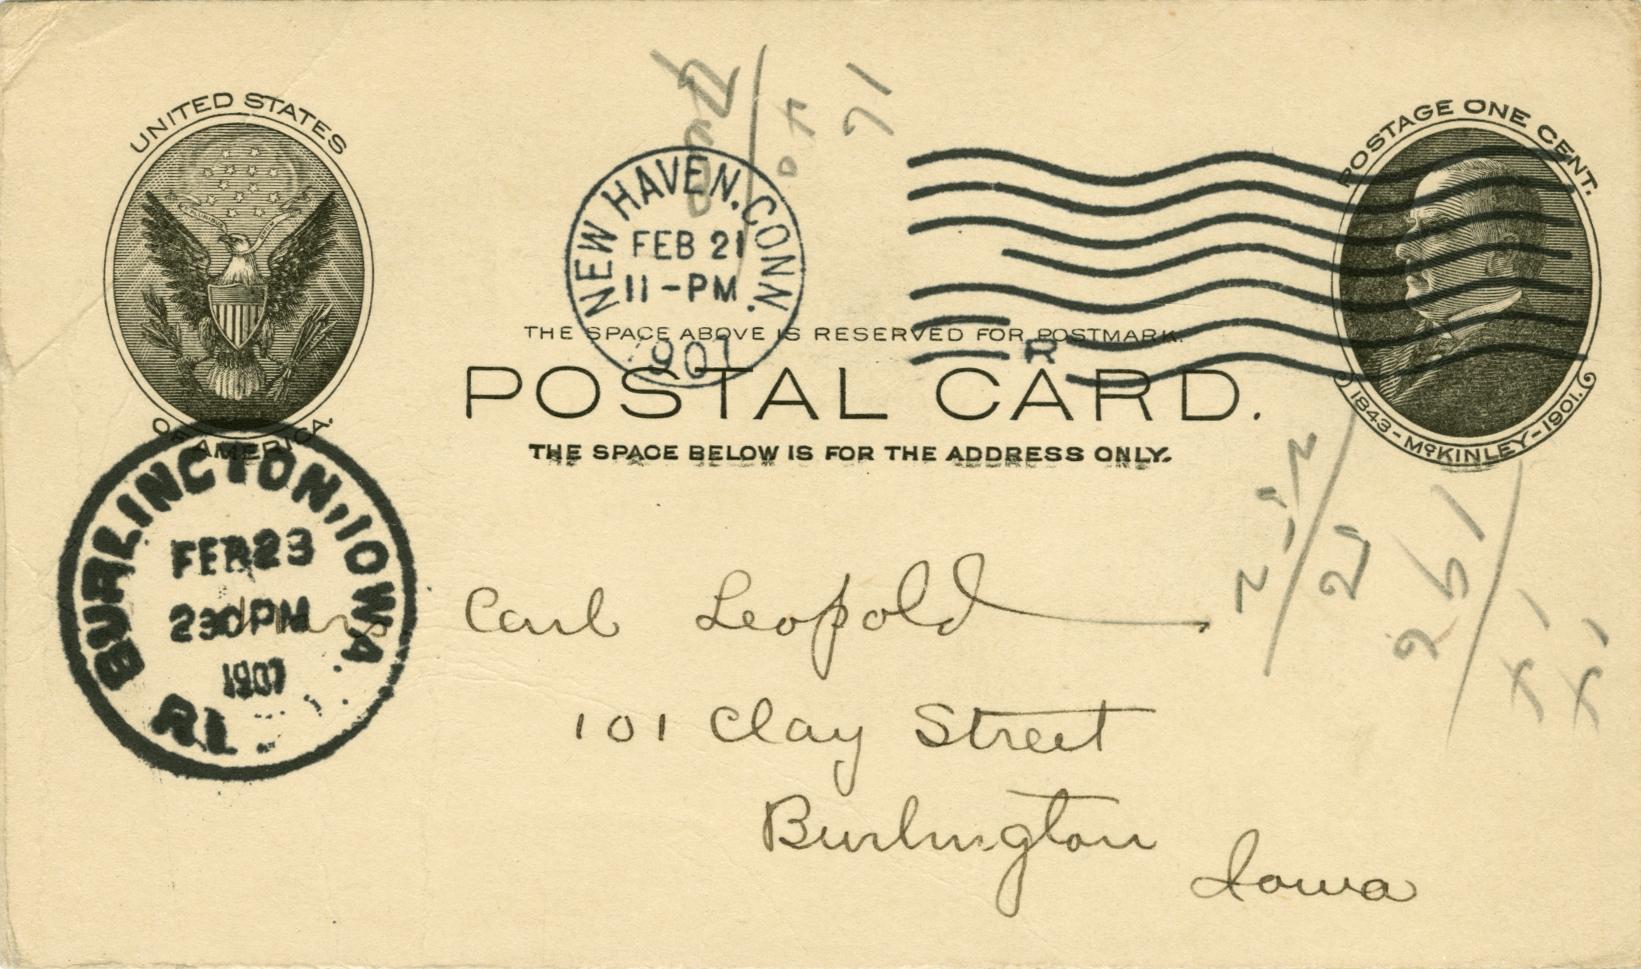 UNITED STATES
OF AMERICA.
NEW HAVEN, CONN.
FEB 21
11-PM
1907
POSTAGE ONE CENT.
1843-McKINLEY-1901.
THE SPACE ABOVE IS RESERVED FOR POSTMARK.
R
POSTAL CARD.
THE SPACE BELOW IS FOR THE ADDRESS ONLY.
BURLINGTON, IOWA.
FEB 23
230PM
1907
Mrs Carl Leopold
101 Clay Street
Burlington
Iowa